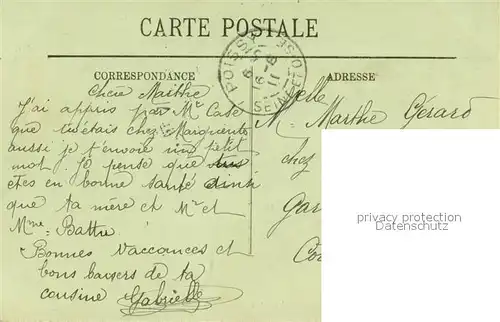 CARTE POSTALE
CORRESPONDANCE
ADRESSE
POISSY
SEINE-ET-OISE
Chère Marthe
J'ai appris par Mr Case
que tu étais chez Marguerite
aussi je t'envoie un petit
mot. Je pense que tu
etes en bonne santé ainsi
que ta mère et Mr et
Mme Battu
Bonnes vaccances et
bons baisers de ta
cousine Gabrielle
Melle
Marthe Gérard
chez
Gar
Co
privacy protection
Datenschutz